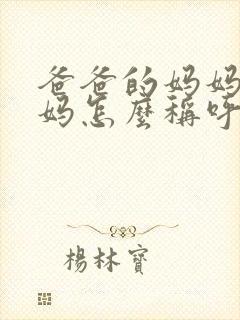 爸爸的妈妈
妈怎麼稱呼
楊林寶